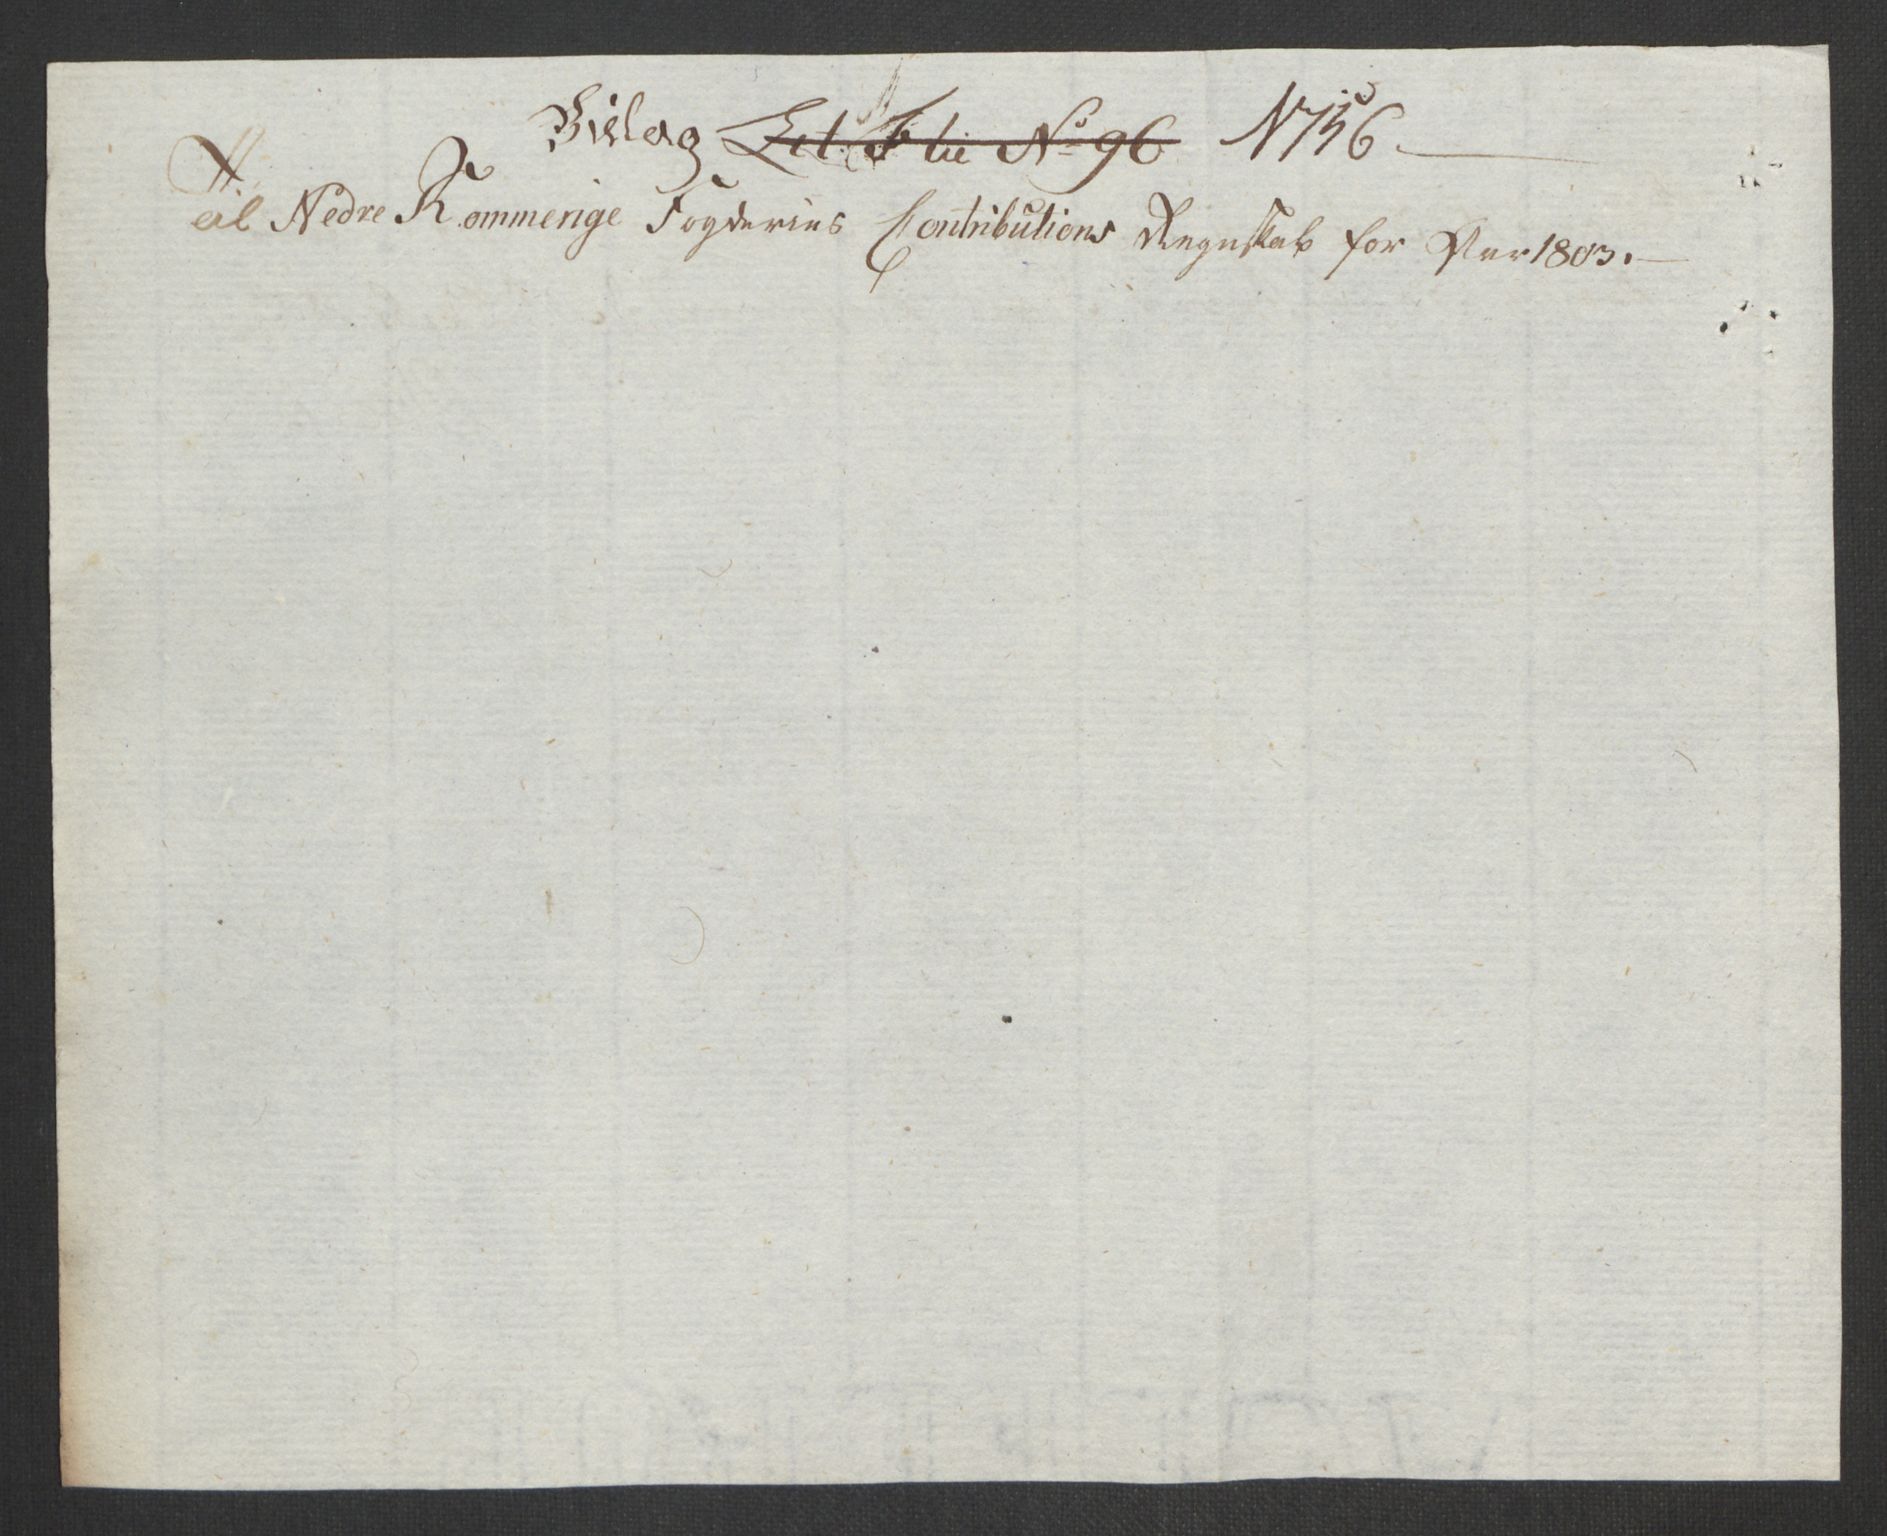 Bielag Lit. F. lii No 96 No 156.
Til Nedre Rommerige Fogderies Contributions Regnskab for Aar 1803.